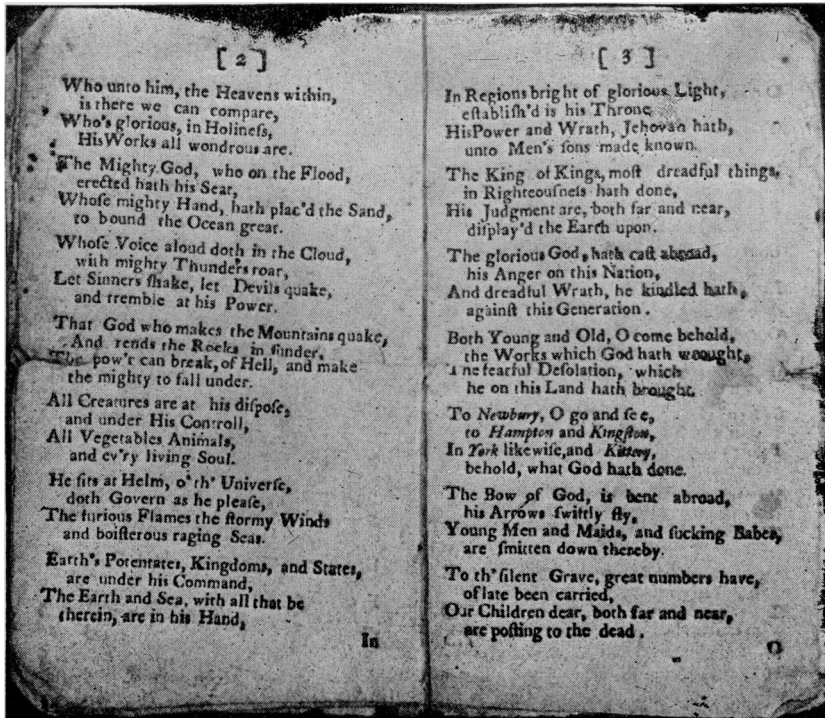 [ 2 ]
Who unto him, the Heavens within,
is there we can compare,
Who's glorious, in Holineſs,
His Works all wondrous are.
The Mighty God, who on the Flood,
erected hath his Seat,
Whoſe mighty Hand, hath plac'd the Sand,
to bound the Ocean great.
Whoſe Voice aloud doth in the Cloud,
with mighty Thunders roar,
Let Sinners ſhake, let Devils quake,
and tremble at his Power.
That God who makes the Mountains quake,
And rends the Rocks in ſunder,
The pow'r can break, of Hell, and make
the mighty to fall under.
All Creatures are at his diſpoſe,
and under His Controll,
All Vegetables Animals,
and ev'ry living Soul.
He ſits at Helm, o'th' Univerſe,
doth Govern as he pleaſe,
The furious Flames the ſtormy Winds
and boiſterous raging Seas.
Earth's Potentates, Kingdoms, and States,
are under his Command,
The Earth and Sea, with all that be
therein, are in his Hand,
In
[ 3 ]
In Regions bright of glorious Light,
eſtabliſh'd is his Throne
His Power and Wrath, Jehovah hath,
unto Men's ſons made known.
The King of Kings, moſt dreadful things,
in Righteouſneſs hath done,
His Judgment are, both far and near,
diſplay'd the Earth upon.
The glorious God, hath caſt abroad,
his Anger on this Nation,
And dreadful Wrath, he kindled hath,
againſt this Generation.
Both Young and Old, O come behold,
the Works which God hath wrought,
The fearful Deſolation, which
he on this Land hath brought.
To Newbury, O go and ſee,
to Hampton and Kingſton,
In York likewiſe, and Kittery,
behold, what God hath done.
The Bow of God, is bent abroad,
his Arrows ſwiftly fly,
Young Men and Maids, and ſucking Babes,
are ſmitten down thereby.
To th' ſilent Grave, great numbers have,
of late been carried,
Our Children dear, both far and near,
are poſting to the dead.
O